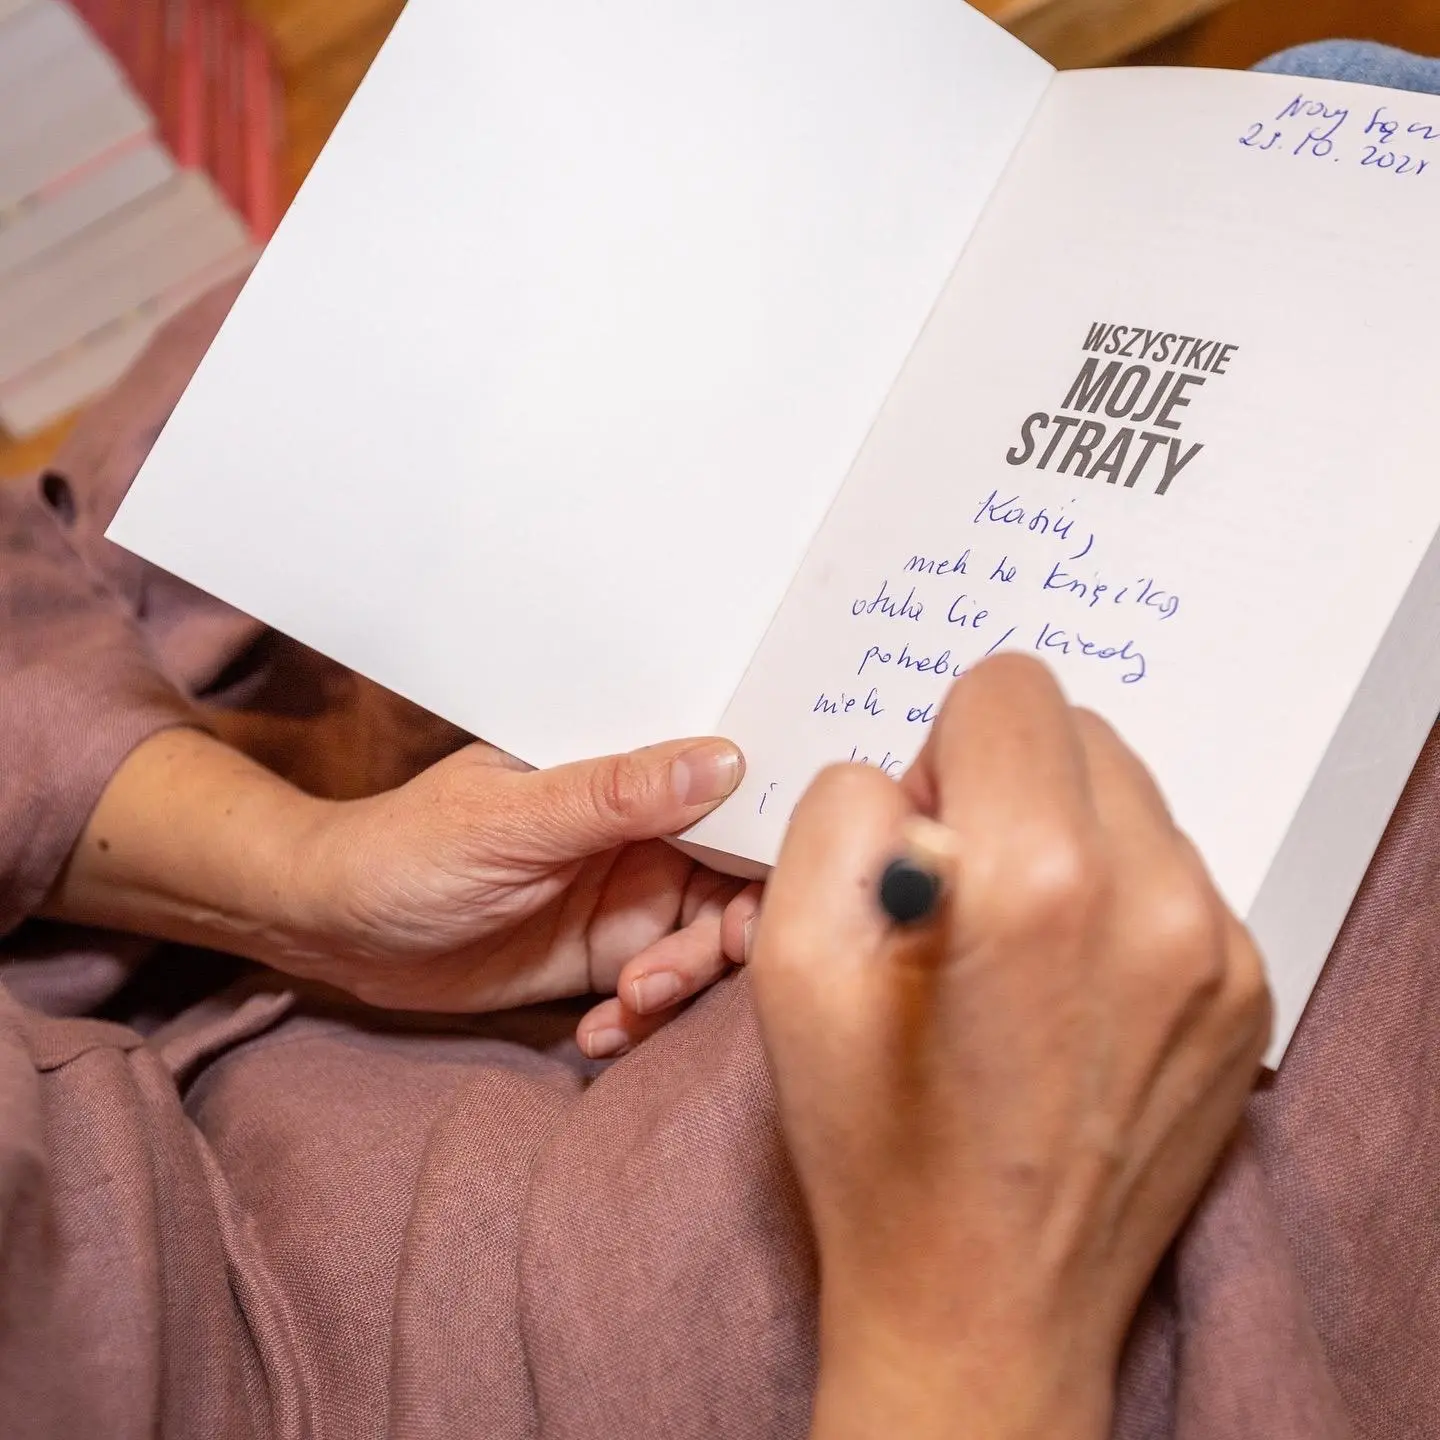 Nowy Sącz
23.10.2021
WSZYSTKIE
MOJE
STRATY
Kasiu,
niech ta książka
otula Cię, kiedy
potrzebu
niech
i